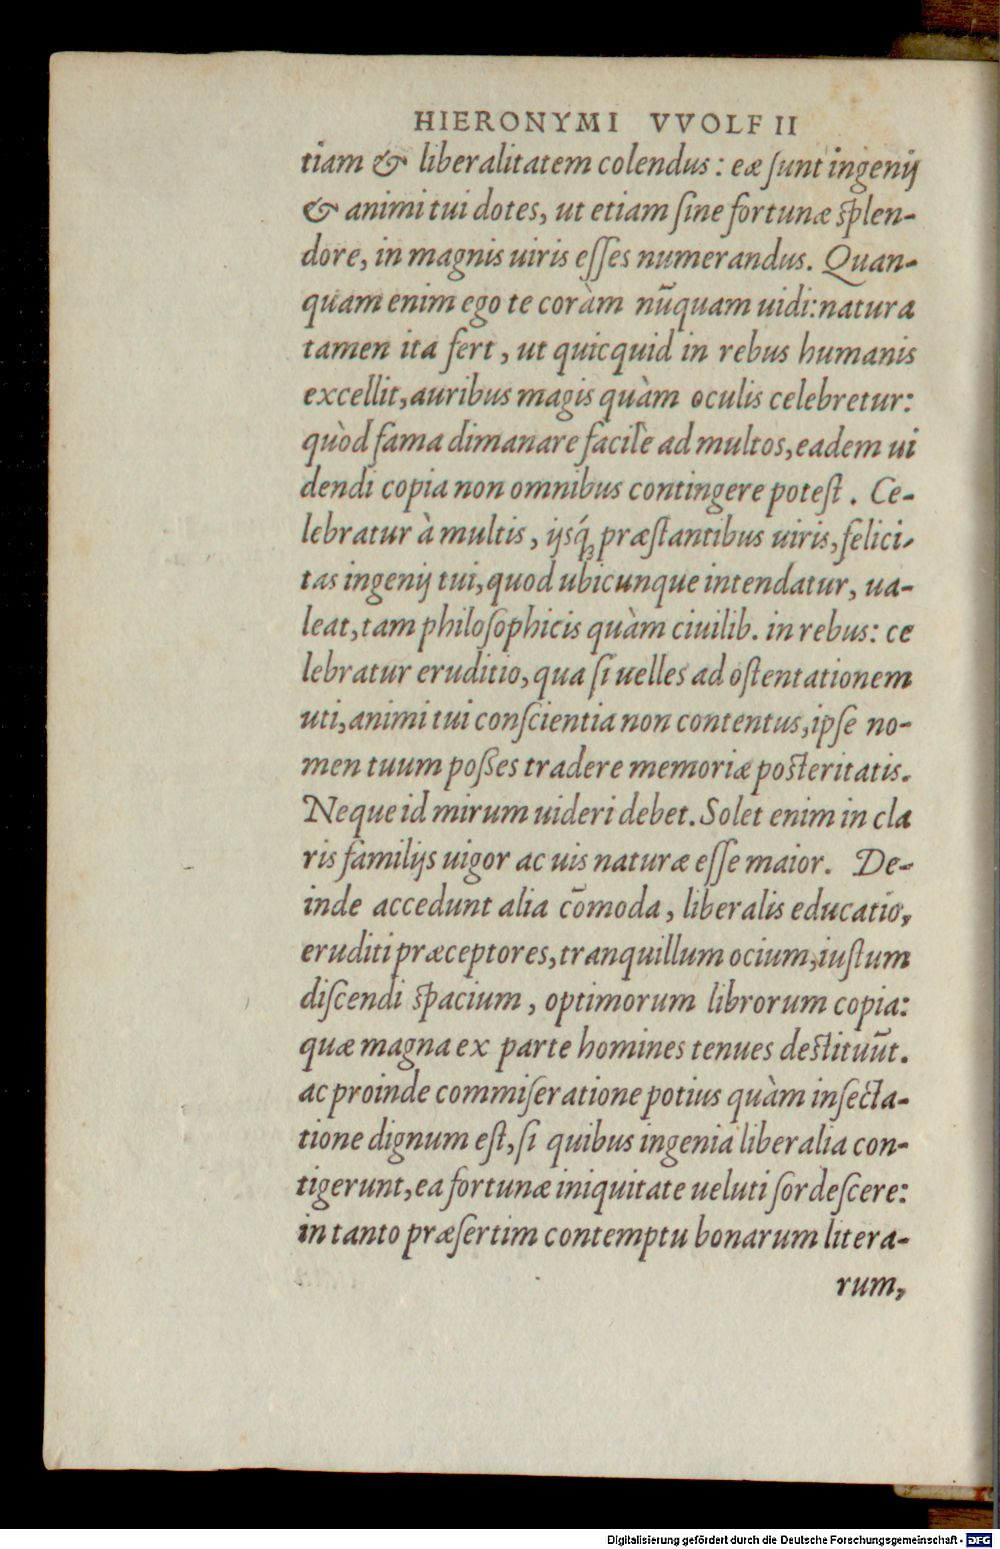 HIERONYMI VVOLF II
tiam & liberalitatem colendus: eæ ſunt ingenij
& animi tui dotes, ut etiam ſine fortunæ ſplen-
dore, in magnis uiris eſſes numerandus. Quan-
quam enim ego te coràm nūquam uidi: natura
tamen ita fert, ut quicquid in rebus humanis
excellit, auribus magis quàm oculis celebretur:
quòd fama dimanare facilè ad multos, eadem ui
dendi copia non omnibus contingere poteſt. Ce-
lebratur à multis, ijsq́; præſtantibus uiris, felici-
tas ingenij tui, quod ubicunque intendatur, ua-
leat, tam philoſophicis quàm ciuilib. in rebus: ce
lebratur eruditio, qua ſi uelles ad oſtentationem
uti, animi tui conſcientia non contentus, ipſe no-
men tuum poſſes tradere memoriæ poſteritatis.
Neque id mirum uideri debet. Solet enim in cla
ris familijs uigor ac uis naturæ eſſe maior. De-
inde accedunt alia cōmoda, liberalis educatio,
eruditi præceptores, tranquillum ocium, iuſtum
diſcendi ſpacium, optimorum librorum copia:
quæ magna ex parte homines tenues deſtituūt.
ac proinde commiſeratione potius quàm inſecta-
tione dignum eſt, ſi quibus ingenia liberalia con-
tigerunt, ea fortunæ iniquitate ueluti ſordeſcere:
in tanto præſertim contemptu bonarum litera-
rum,
Digitalisierung gefördert durch die Deutsche Forschungsgemeinschaft - DFG